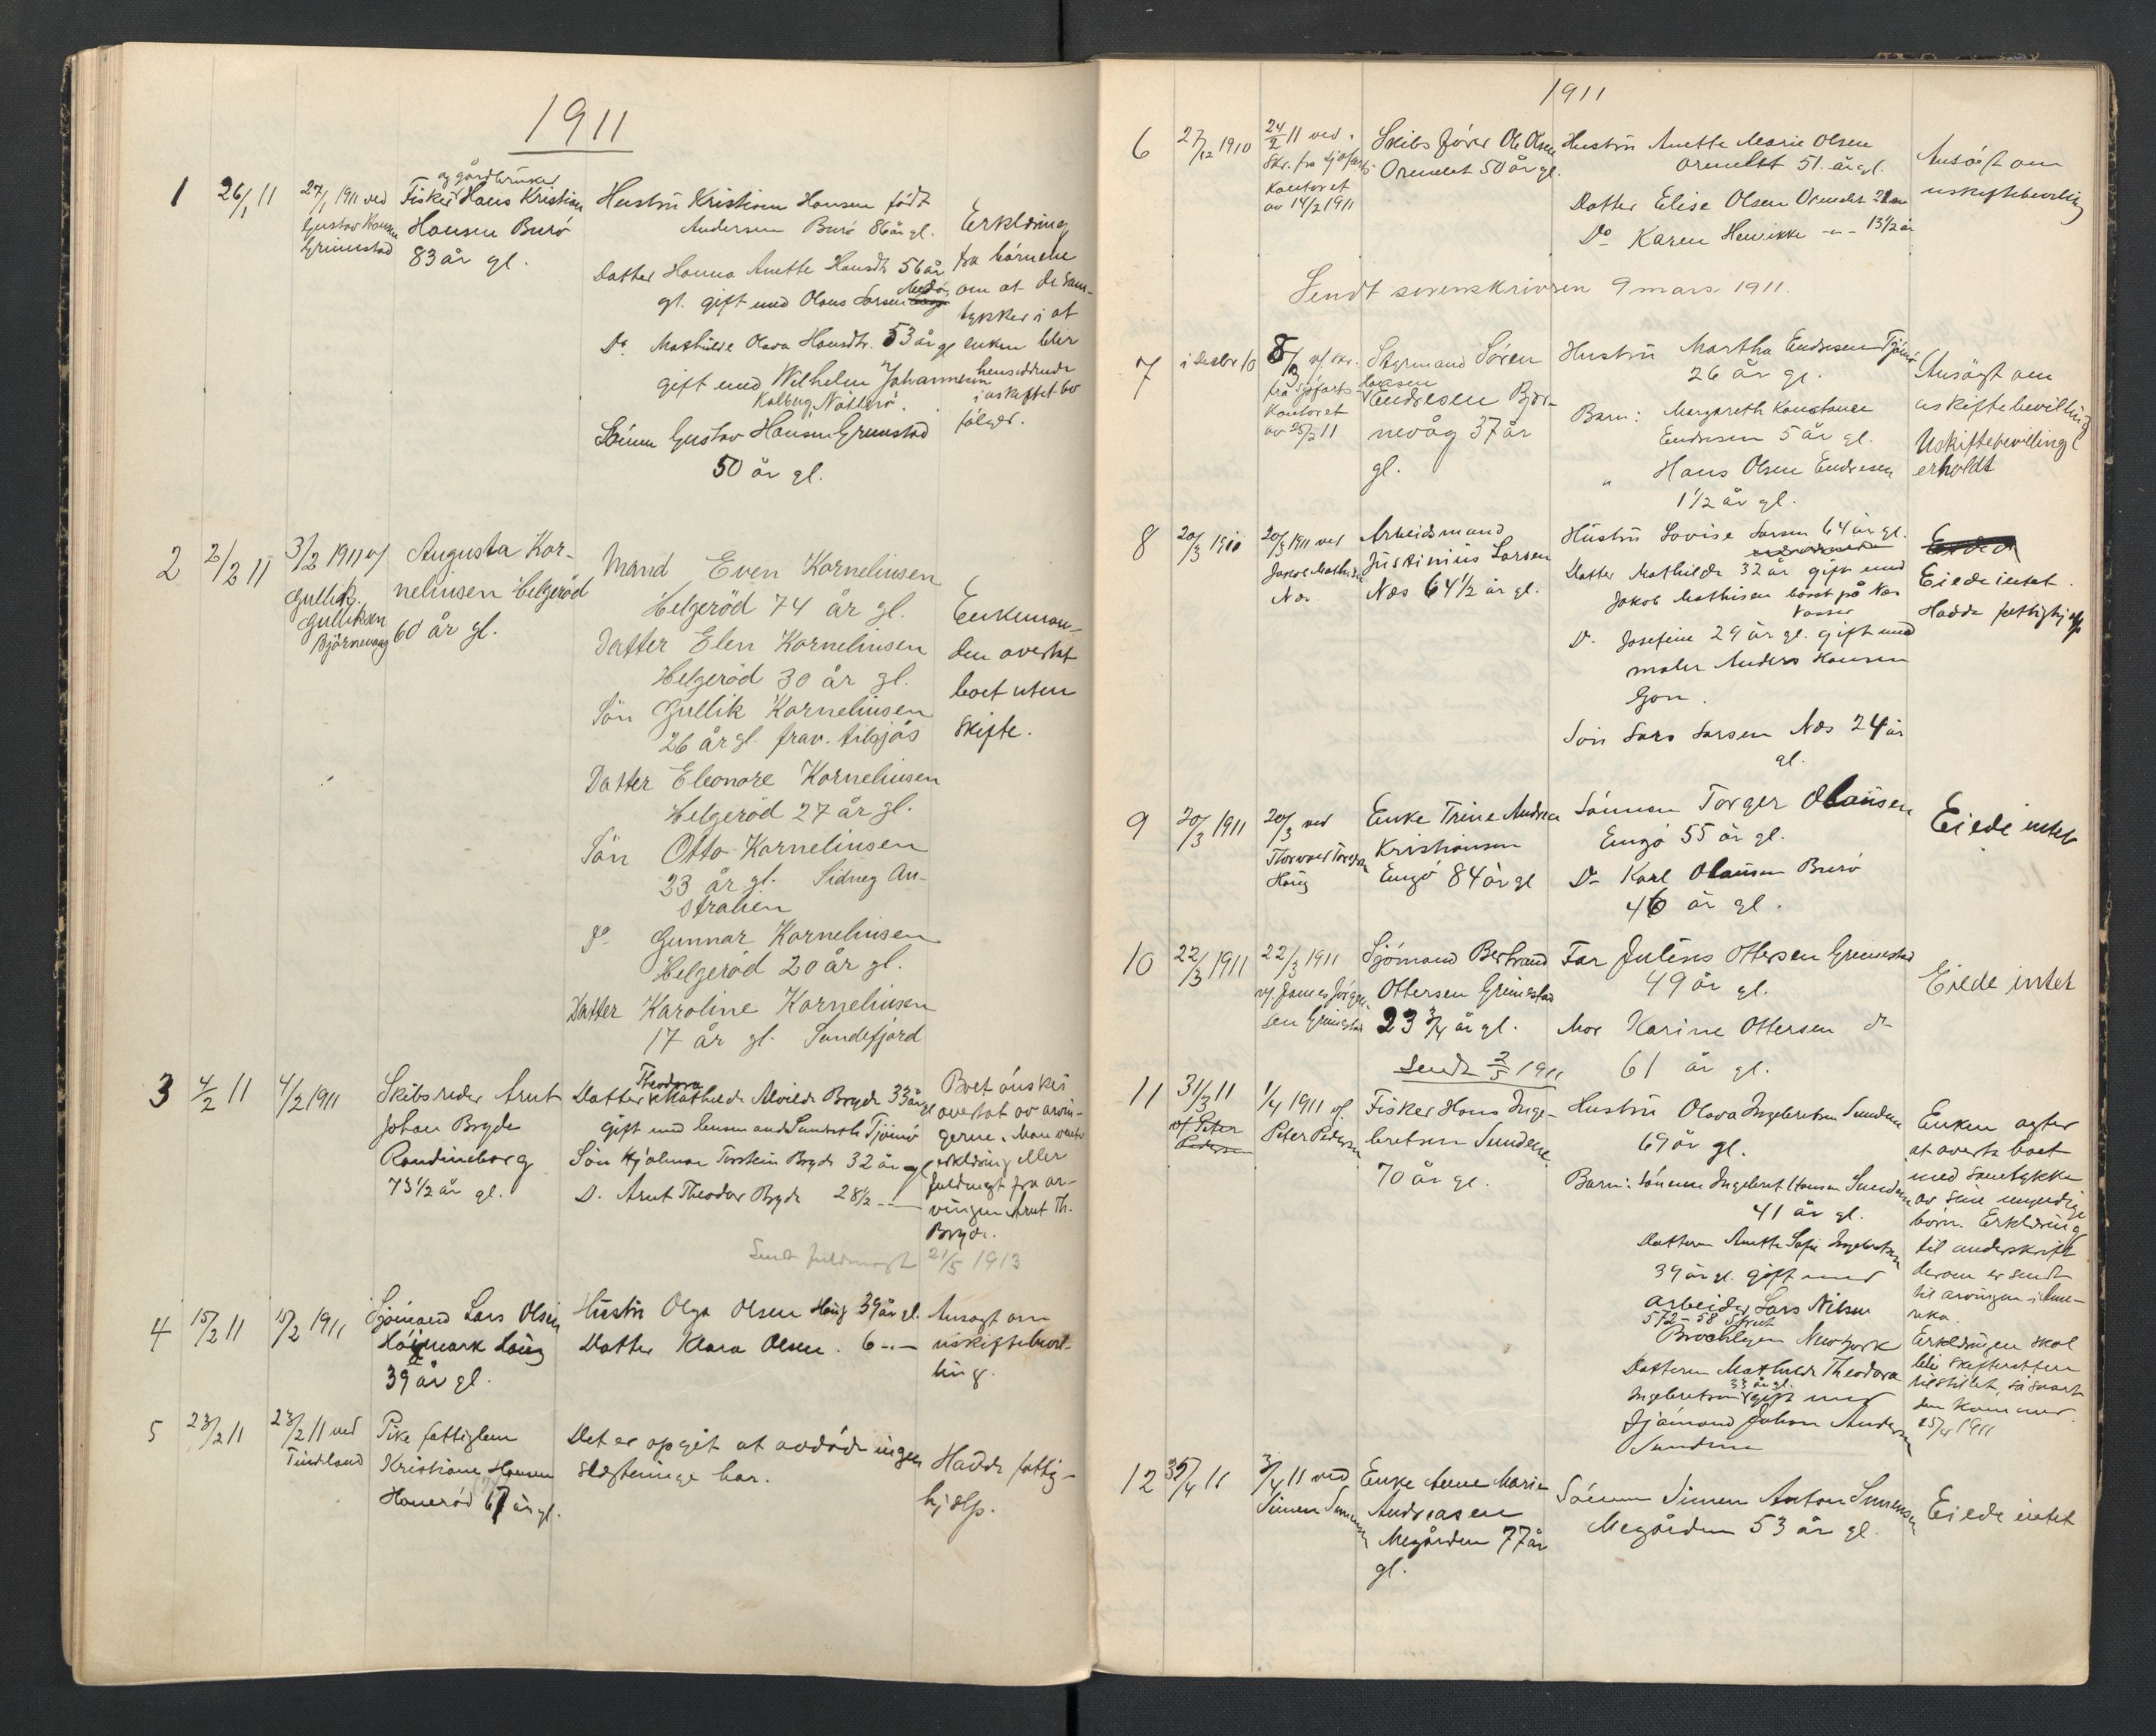 1911
1
26/1 11
27/1 1911 ved
Gustav Hansen
Grimestad
og gårdbruker
Fisker Hans Kristian
Hansen Burö
83 år gl.
Hustru Kristiane Hansen född
Andersen Burö 86 år gl.
Datter Hanna Anette Hansdtr 56 år
gl. gift med Olaus Larsen
Do Mathilde Olava Hansdtr. 53 år gl
gift med Wilhelm Johannesen
Kalberg, Nötterö.
Sönnen Gustav Hansen Grimestad
50 år gl.
Erklæring
fra börnene
om at de sam-
tykker i at
enken blir
hensiddende
i uskiftet bo
fölger.
2
2/2 11
3/2 1911 v/
Gullik
Gulliksen
Björnevaag
Augusta Kor-
neliusen Helgeröd
60 år gl.
Mand Even Korneliusen
Helgeröd 74 år gl.
Datter Elen Korneliusen
Helgeröd 30 år gl.
Sön Gullik Korneliusen
26 år gl. frav. tilsjös
Datter Eleonore Korneliusen
Helgeröd 27 år gl.
Sön Otto Korneliusen
23 år gl. Sidney Au-
stralien
Do Gunnar Korneliusen
Helgeröd 20 år gl.
Datter Karoline Korneliusen
17 år gl. Sandefjord
Enkeman-
den overtat
boet uten
skifte.
3
4/2 11
4/2 1911
Skibsreder Arnt
Johan Bryde
Randineborg
73 1/2 år gl.
Theodora
Datter Mathilde Alvilde Bryde 33 år gl
gift med lensmand Sundseth Tjömö
Sön Hjalmar Torstein Bryde 32 år gl
D. Arnt Theodor Bryde 28 1/2 - " -
Boet önskes
overtat av arvin-
gerne. Man venter
erklæring eller
fuldmagt fra ar-
vingen Arnt Th.
Bryde.
Sendt fuldmagt 21/5 1913
4
15/2 11
15/2 1911
Sjömand Lars Olsen
Höimark Haug
39 år gl.
Hustru Olga Olsen Haug 39 år gl.
Datter Klara Olsen. 6 - " -
Ansögt om
uskiftebevil-
ling.
5
23/2 11
23/2 11 ved
Tindland
Pike fattiglem
Kristiane Hansen
Haneröd 67 år gl.
Det er opgit at avdöde ingen
slægtninge har.
Hadde fattig-
hjælp.
1911
6
27/12 1910
24/2 11 ved
Skr. fra sjöfarts
kontoret
av 14/2 1911
Skibsförer Ole Olsen
Ormelet 50 år gl.
Hustru Anette Marie Olsen
Ormelet 51. år gl.
Datter Elise Olsen Ormelet 21 år
Do Karen Henrikke - " - 13 1/2 år
Ansögt om
uskiftebevilling
Sendt sorenskriveren 9 mars 1911.
7
i Decbr 10
8/3 v/ skr.
fra sjöfarts-
kontoret
av 25/2 11
Styrmand Sören
Endresen Björ-
nevåg 37 år
gl.
Hustru Martha Endresen Tjömö
26 år gl.
Barn: Margareth Konstanse
Endresen 5 år gl.
" Hans Olsen Endresen
1 1/2 år gl.
Ansögt om
uskiftebevilling
Uskiftebevilling
erholdt
8
20/3 1911
20/3 1911 ved
Jakob Mathisen
Næs
Arbeidsmand
Justinius Larsen
Næs 64 1/2 år gl.
Hustru Lovise Larsen 64 år gl.
Datter Mathilde 32 år gift med
Jakob Mathisen bosat på Næs
D. Josefine 29 år gl. gift med
maler Anders Hansen
Gon.
Sön Lars Larsen Næs 24 år
gl.
Eiede intet.
Hadde fattighjelp
9
20/3 1911
20/3 ved
Thorvald Torgersen
Haug
Enke Trine Andrea
Kristiansen
Engö 84 år gl
Sönnen Torger Olausen
Engö 55 år gl.
Do Karl Olausen Burö
46 år gl.
Eiede intet
10
22/3 1911
22/3 1911
v/ James Jörgen-
sen Grimestad
Sjömand Bertrand
Ottersen Grimestad
23 3/4 år gl.
Far Julius Ottersen Grimestad
49 år gl.
Mor Karine Ottersen do
61 år gl.
Eiede intet
Sendt 2/5 1911
11
31/3 11
v/ Peter
Pedersen
1/4 1911 v/
Peter Pedersen
Fisker Hans Inge-
bretsen Sundene
70 år gl.
Hustru Olava Ingebretsen Sundene
69 år gl.
Barn: Sönnen Ingebret Hansen Sundene
41 år gl.
Datteren Anette Sofie Ingebretsen
39 år gl. gift med
arbeider Lars Nilsen
572 - 58 Street
Brooklyn New York
Datteren Mathilde Theodora
33 år gl.
Ingebretsen gift med
Sjömand Johan Andersen
Sundene
Enken agter
at overta boet
med samtykke
av sine myndige
börn. Erklæring
til underskrift
derom er sendt
til arvingen i Ame-
rika.
Erklæringen skal
bli skifteretten
tilstillet, så snart
den kommer.
25/4 1911
12
3/4 11
3/4 11 ved
Simen Simensen
Enke Anne Marie
Andreasen
Megården 77 år
gl.
Sönnen Simen Anton Simensen
Megården 53 år gl.
Eiede intet